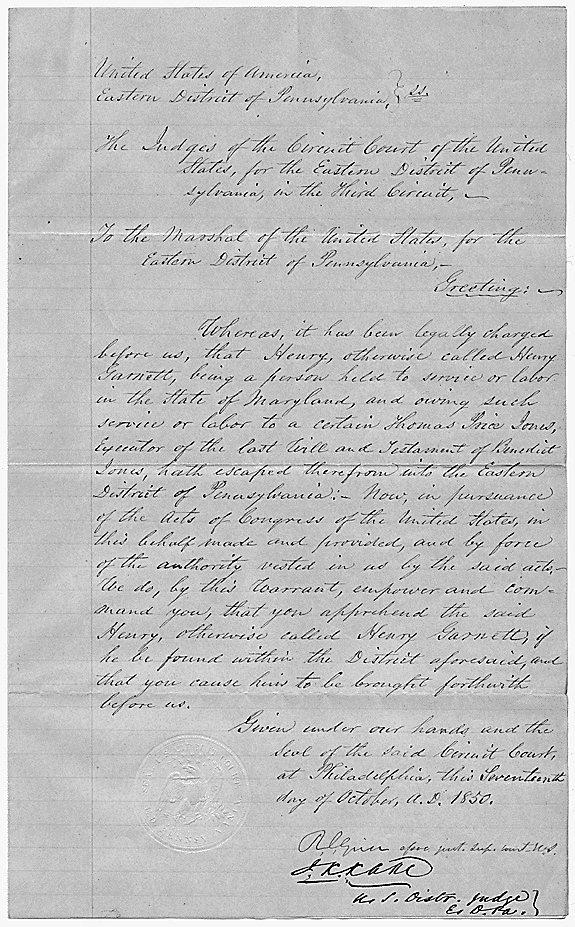 United States of America,
Eastern District of Pennsylvania, } ss.
The Judges of the Circuit Court of the United
States, for the Eastern District of Penn-
sylvania, in the Third Circuit, ~
To the Marshal of the United States, for the
Eastern District of Pennsylvania,-
Greeting: ~
Whereas, it has been legally charged
before us, that Henry, otherwise called Henry
Garnett, being a person held to service or labor
in the State of Maryland, and owing such
service or labor to a certain Thomas Price Jones,
Executor of the last Will and Testament of Benedict
Jones, hath escaped therefrom into the Eastern
District of Pennsylvania:- Now, in pursuance
of the Acts of Congress of the United States, in
this behalf made and provided, and by force
of the authority vested in us by the said acts,-
We do, by this Warrant, empower and com-
mand you, that you apprehend the said
Henry, otherwise called Henry Garnett, if
he be found within the District aforesaid, and
that you cause him to be brought forthwith
before us.
Given under our hands and the
Seal of the said Circuit Court,
at Philadelphia, this Seventeenth
day of October, A.D. 1850.
R. C. Grier just. sup. court U.S.
J. K. Kane
U. S. Distr. Judge
Es D. Pa. }